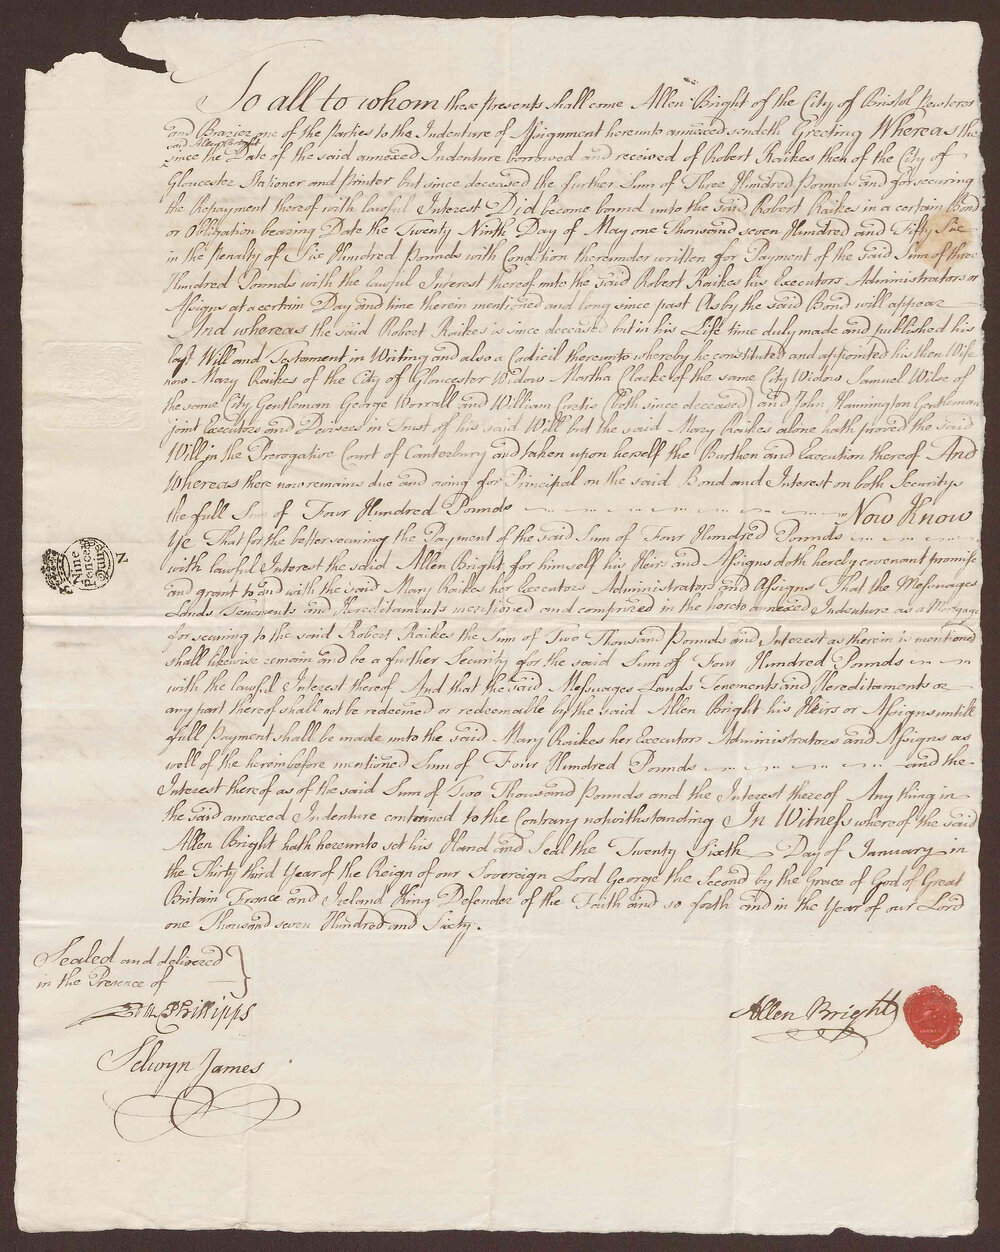 To all to whom these Presents shall come Allen Bright of the City of Bristol Pewterer
and Brazier one of the Parties to the Indenture of Assignment hereunto annexed sendeth Greeting Whereas the
said Allen Bright
since the Date of the said annexed Indenture borrowed and received of Robert Raikes then of the City of
Gloucester Stationer and Printer but since deceased the further Sum of Three Hundred Pounds and for securing
the Repayment thereof with lawful Interest Did become bound unto the said Robert Raikes in a certain Bond
or Obligation bearing Date the Twenty Ninth Day of May one Thousand seven Hundred and Fifty Six
in the Penalty of Six Hundred Pounds with Condition thereunder written for Payment of the said Sum of three
Hundred Pounds with the lawful Interest thereof unto the said Robert Raikes his Executors Administrators or
Assigns at a certain Day and time therein mentioned and long since past As by the said Bond will appear
And whereas the said Robert Raikes is since deceased but in his Life time duly made and published his
last Will and Testament in Writing and also a Codicil thereunto whereby he constituted and appointed his then Wife
now Mary Raikes of the City of Gloucester Widow Martha Clarke of the same City Widow Samuel Wilse of
the same City Gentleman George Worrall and William Curtis (both since deceased) and John Hannington Gentleman
joint Executors and Devisees in Trust of his said Will but the said Mary Raikes alone hath proved the said
Will in the Prerogative Court of Canterbury and taken upon herself the Burthen and Execution thereof And
Whereas there now remains due and owing for Principal on the said Bond and Interest on both Securitys
the full Sum of Four Hundred Pounds Now Know
Ye That for the better securing the Payment of the said Sum of Four Hundred Pounds
with lawful Interest the said Allen Bright for himself his Heirs and Assigns doth hereby covenant promise
and grant to and with the said Mary Raikes her Executors Administrators and Assigns That the Messuages
Lands Tenements and Hereditaments mentioned and comprized in the hereto annexed Indenture as a Mortgage
for securing to the said Robert Raikes the Sum of Two Thousand Pounds and Interest as therein is mentioned
shall likewise remain and be a further Security for the said Sum of Four Hundred Pounds
with the lawful Interest thereof And that the said Messuages Lands Tenements and Hereditaments or
any part thereof shall not be redeemed or redeemable by the said Allen Bright his Heirs or Assigns untill
full Payment shall be made unto the said Mary Raikes her Executors Administrators and Assigns as
well of the hereinbefore mentioned Sum of Four Hundred Pounds and the
Interest thereof as of the said Sum of Two Thousand Pounds and the Interest thereof Any thing in
the said annexed Indenture contained to the Contrary notwithstanding In Witness whereof the said
Allen Bright hath hereunto set his Hand and Seal the Twenty Sixth Day of January in
the Thirty third Year of the Reign of our Sovereign Lord George the Second by the Grace of God of Great
Britain France and Ireland King Defender of the Faith and so forth and in the Year of our Lord
one Thousand seven Hundred and Sixty.
Nine
Pence
Quire
N
Sealed and delivered
in the Presence of
Phillipps
Selwyn James
Allen Bright